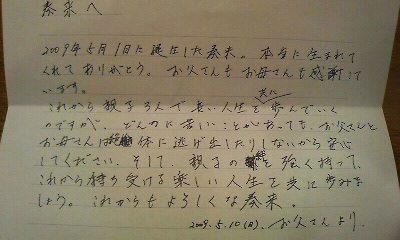 泰来へ
2009年5月1日に誕生した泰来。本当に生まれて
くれてありがとう。お父さんもお母さんも感謝して
います。
これから親子3人で長い人生を共に歩んでいく
のですが、どんなに苦しいことがあっても、お父さんと
お母さんは絶体に逃げ出したりしないから安心
してください。そして、親子の絆を強く持って、
これから待ち受ける楽しい人生を共に歩みま
しょう。これからもよろしくな泰来。
2009.5.10(日). お父さんより.